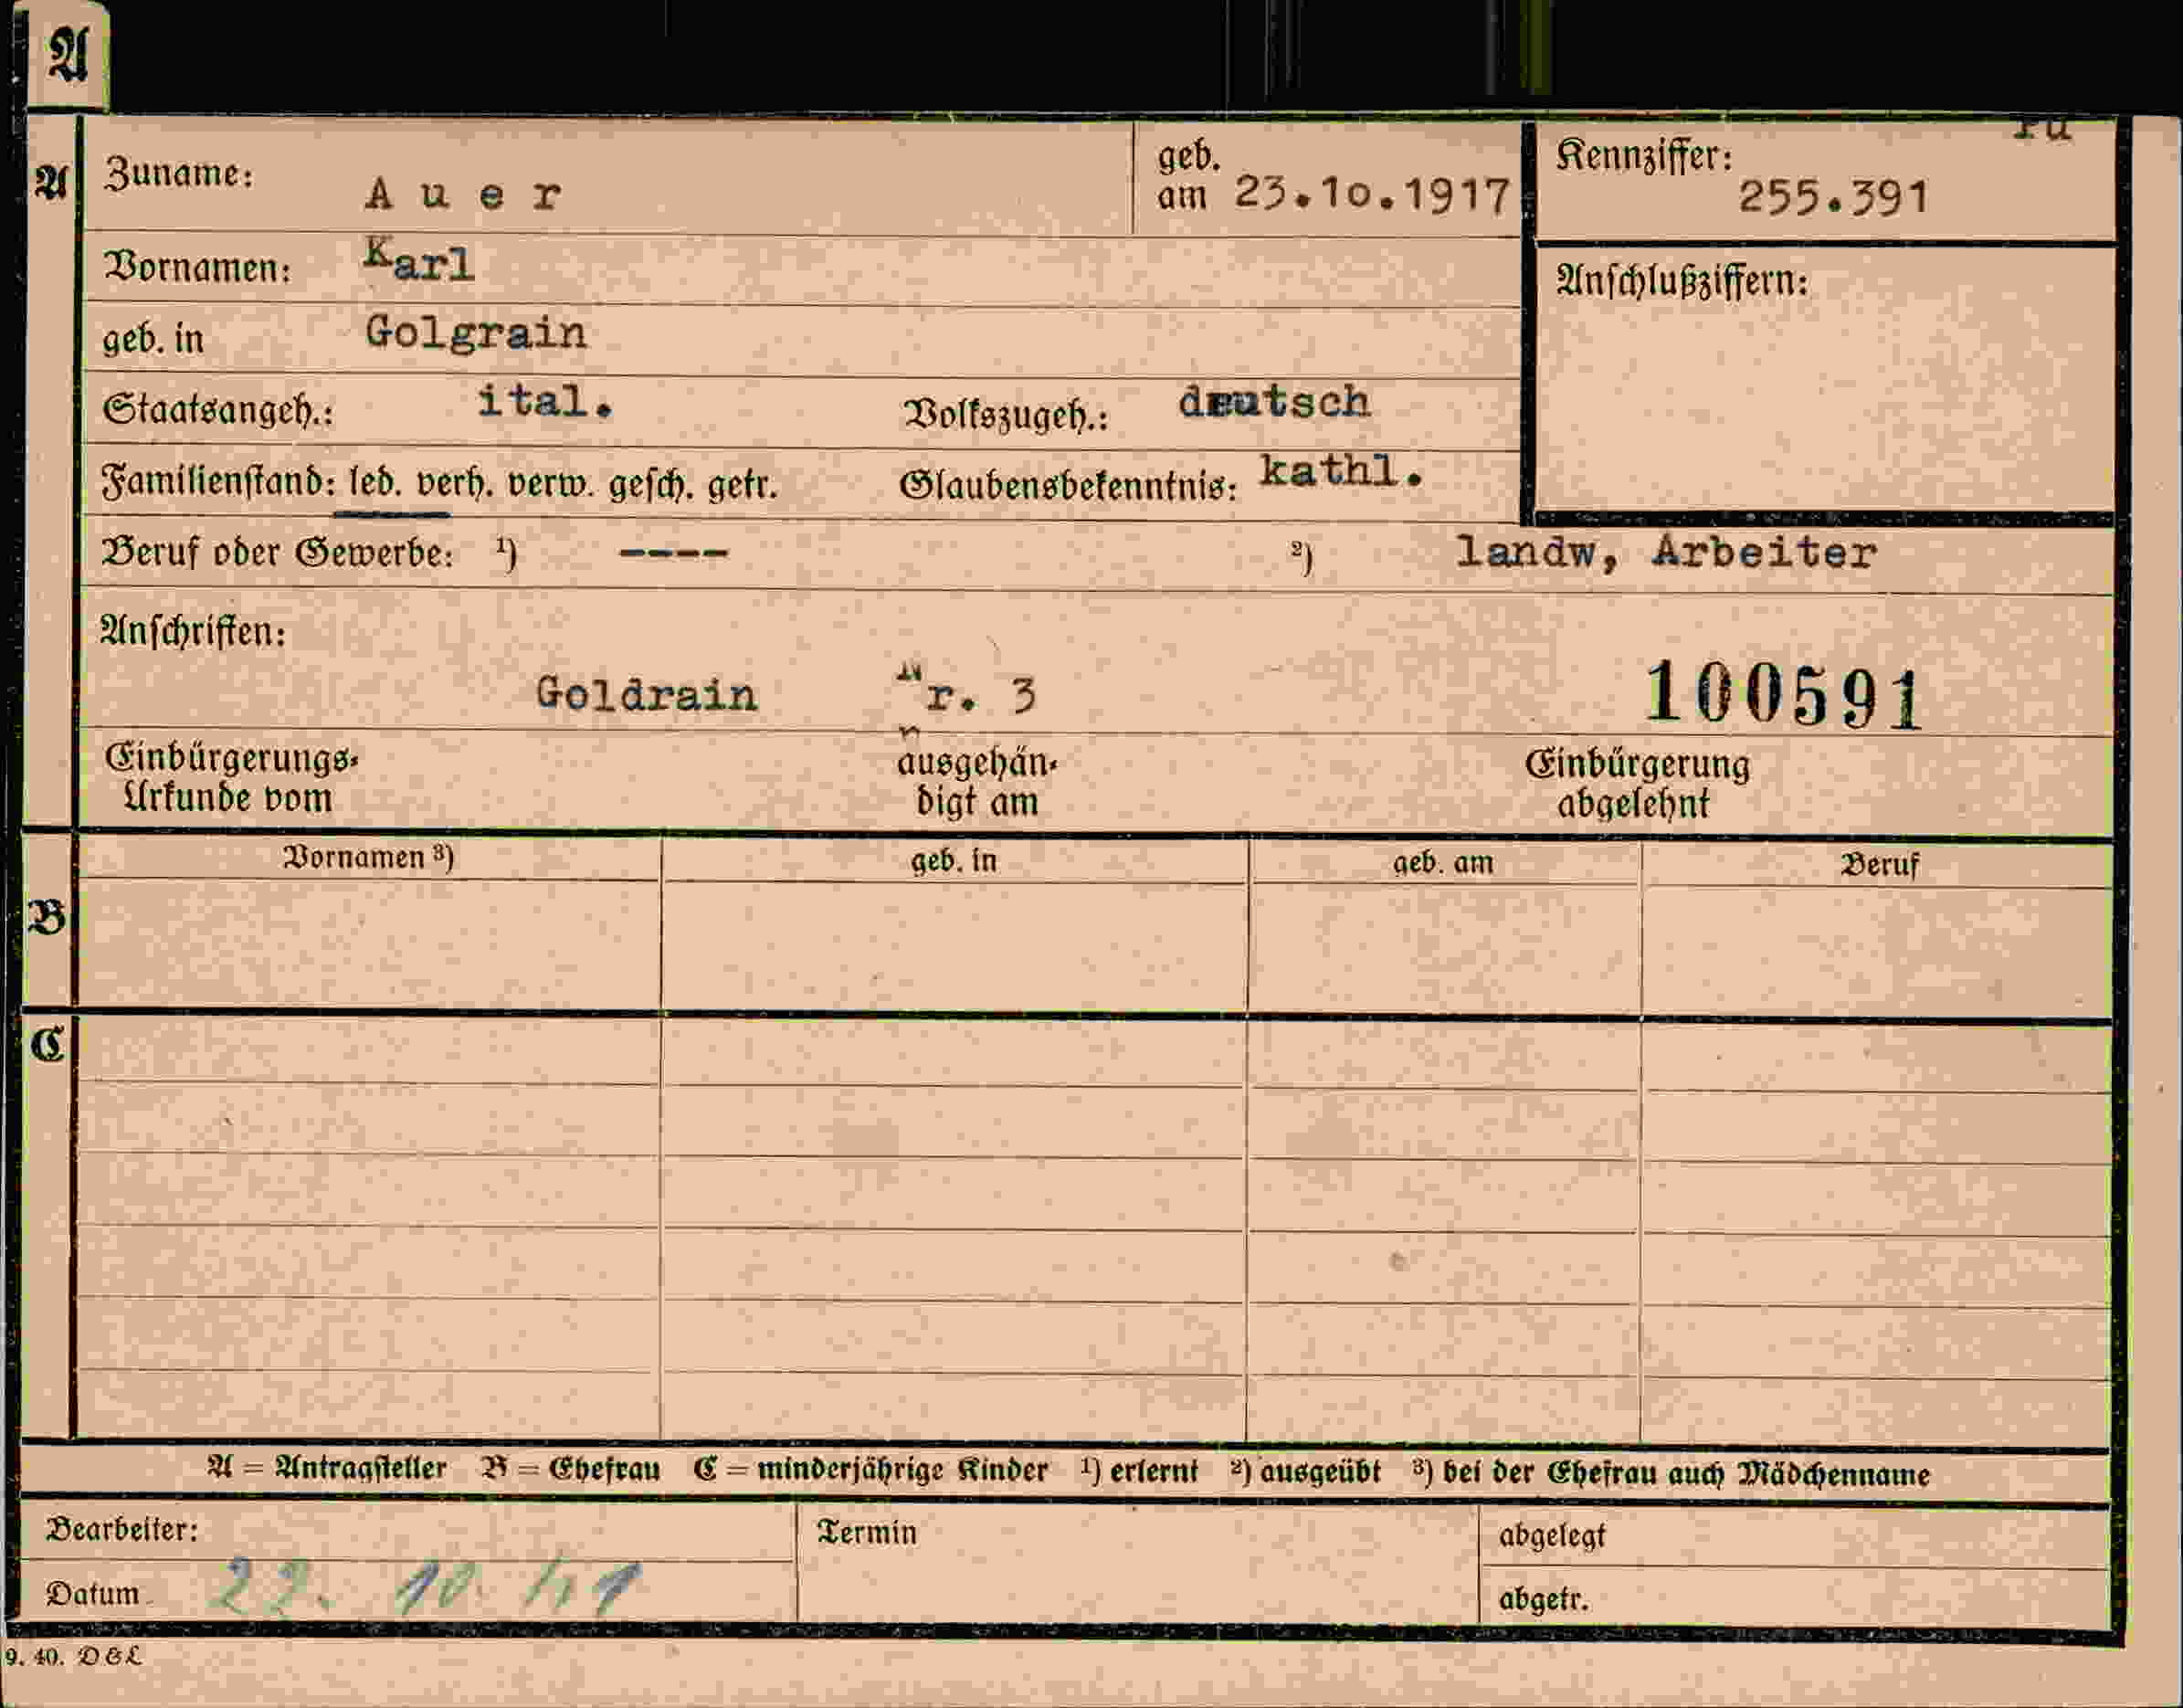 A
A
Zuname: Auer geb. am 23.10.1917 Kennziffer: 255.391
Vornamen: Karl
Anschlußziffern:
geb. in Golgrain
Staatsangeh.: ital. Volkszugeh.: deutsch
Familienstand: led. verh. verw. gesch. getr. Glaubensbekenntnis: kathl.
Beruf oder Gewerbe: ¹) ---- ²) landw, Arbeiter
Anschriften:
Goldrain Nr. 3 100591
Einbürgerungs- ausgehän- Einbürgerung
Urkunde vom digt am abgelehnt
Vornamen ³) geb. in geb. am Beruf
B
C
A = Antragsteller B = Ehefrau C = minderjährige Kinder ¹) erlernt ²) ausgeübt ³) bei der Ehefrau auch Mädchenname
Bearbeiter: Termin abgelegt
Datum 22. 10. 41 abgetr.
9. 40. D&L